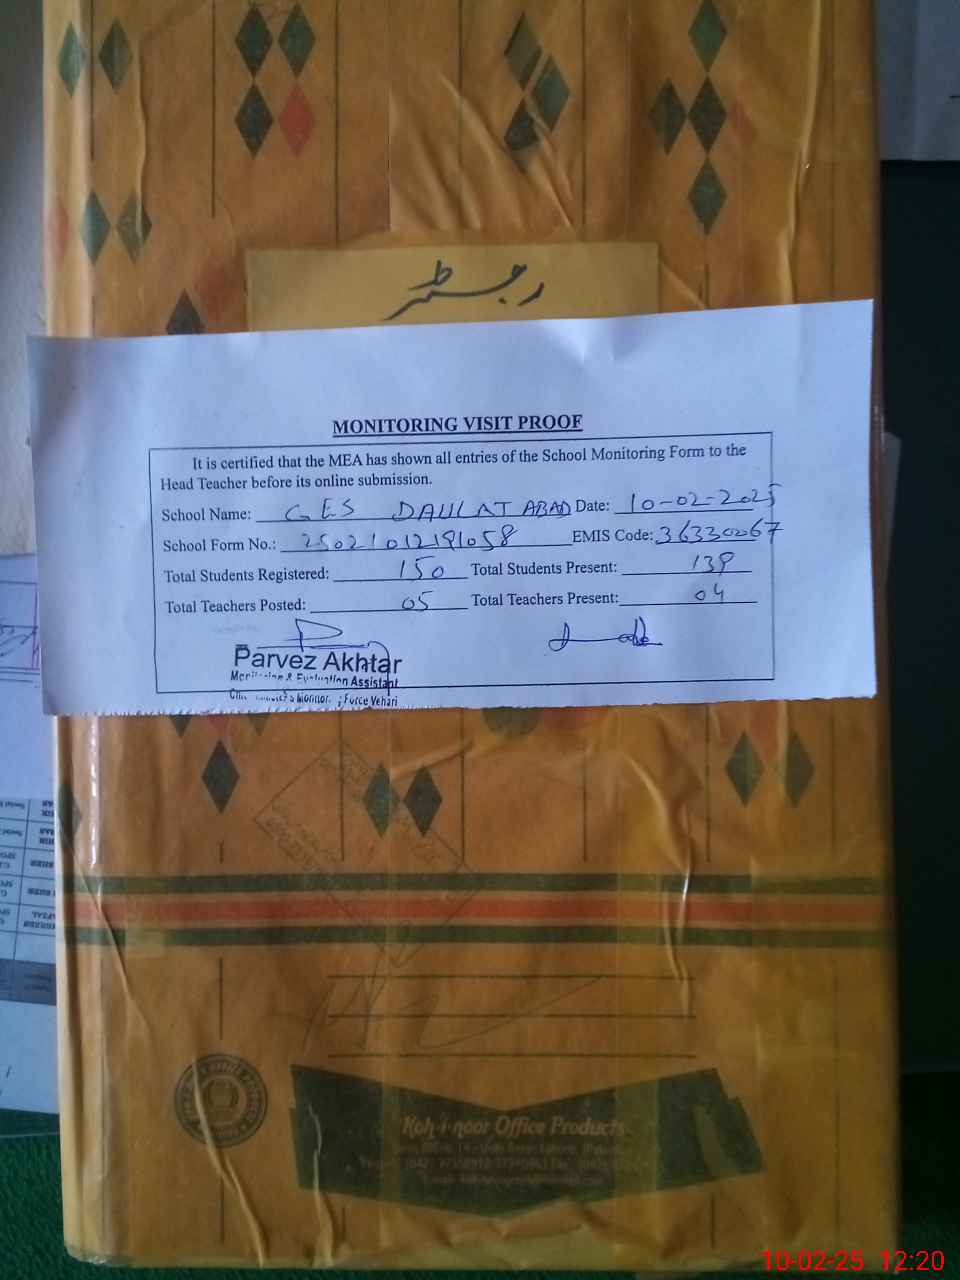 رجسٹر
MONITORING VISIT PROOF
It is certified that the MEA has shown all entries of the School Monitoring Form to the
Head Teacher before its online submission.
School Name: GES DAULAT ABAD Date: 10-02-2025
School Form No.: 25021012191058 EMIS Code: 36330067
Total Students Registered: 150 Total Students Present: 139
Total Teachers Posted: 05 Total Teachers Present: 04
Parvez Akhtar
Monitoring & Evaluation Assistant
Force Vehari
Koh-i-noor Office Products
10-02-25 12:20